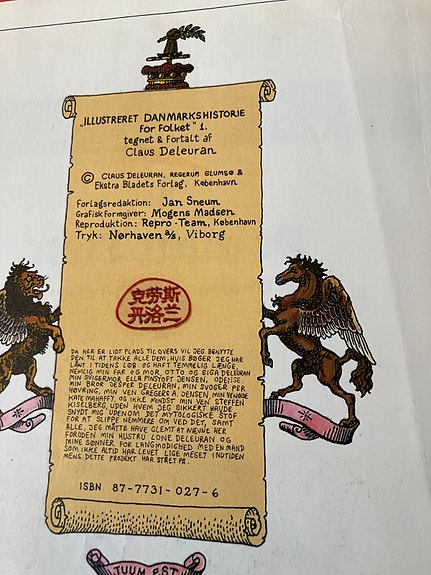 „ILLUSTRERET DANMARKSHISTORIE
for Folket" 1.
tegnet & Fortalt af
Claus Deleuran
© CLAUS DELEURAN, REGERUP, GLUMSØ &
Ekstra Bladets Forlag, København
Forlagsredaktion: Jan Sneum
Grafisk Formgiver: Mogens Madsen
Reproduktion: Repro-Team, København
Tryk: Nørhaven a/s, Viborg
克劳斯
丹洛兰
DA HER ER LIDT PLADS TIL OVERS VIL JEG BENYTTE
DEN TIL AT TAKKE ALLE DEM, HVIS BØGER JEG HAR
LÅNT I TIDENS LØB OG HAFT TEMMELIG LÆNGE,
NEMLIG MIN FAR OG MOR, OTTO OG SIGA DELEURAN
MIN SVIGERMOR ELLA PINSTOFT JENSEN, ODENSE,
MIN BROR JESPER DELEURAN, MIN SVOGER PER
HØVRING, MIN VEN GREGERS A. JENSEN, MIN VENINDE
KATE MAHAFT, OG IKKE MINDST MIN VEN STEFFEN
KISELBERG, UDEN HVEM JEG SIKKERT HAVDE
SNYDT MIG UDENOM DET MYTOLOGISKE STOF
FOR AT SLIPPE NEMMERE OM VED DET, SAMT
ALLE, JEG MÅTTE HAVE GLEMT AT NÆVNE HER
FORUDEN MIN HUSTRU LONE DELEURAN OG
MINE SØNNER FOR LANGMODIGHED MED EN MAND
SOM IKKE ALTID HAR LEVET LIGE MEGET I NUTIDEN
MENS DETTE PROJEKT HAR STÅET PÅ.
ISBN 87-7731-027-6
TUUM EST